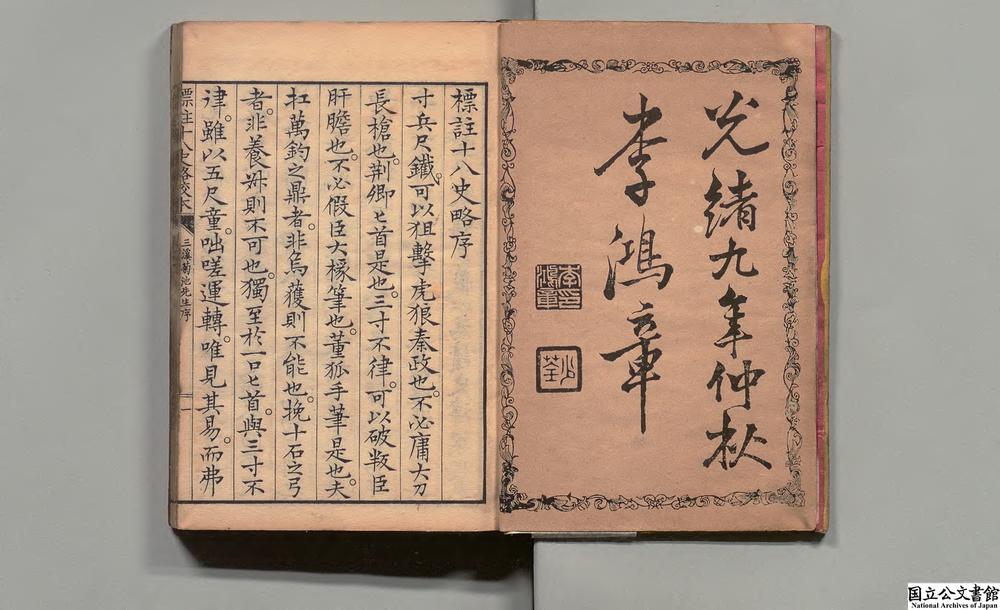 光緒九年仲秋
李鴻章
李印鴻章
少荃
標註十八史略序
寸兵尺鐵。可以狙擊虎狼秦政也。不必庸大刀
長槍也。荆卿匕首是也。三寸不律。可以破叛臣
肝膽也。不必假臣大椽筆也。董狐手筆是也。夫
扛萬鈞之鼎者。非烏獲則不能也。挽十石之弓
者。非養𡛸則不可也。獨至於一口匕首。與三寸不
律。雖以五尺童。咄嗟運轉。唯見其易。而弗
標註十八史略校本
三溪菊池先生序
一
国立公文書館
National Archives of Japan